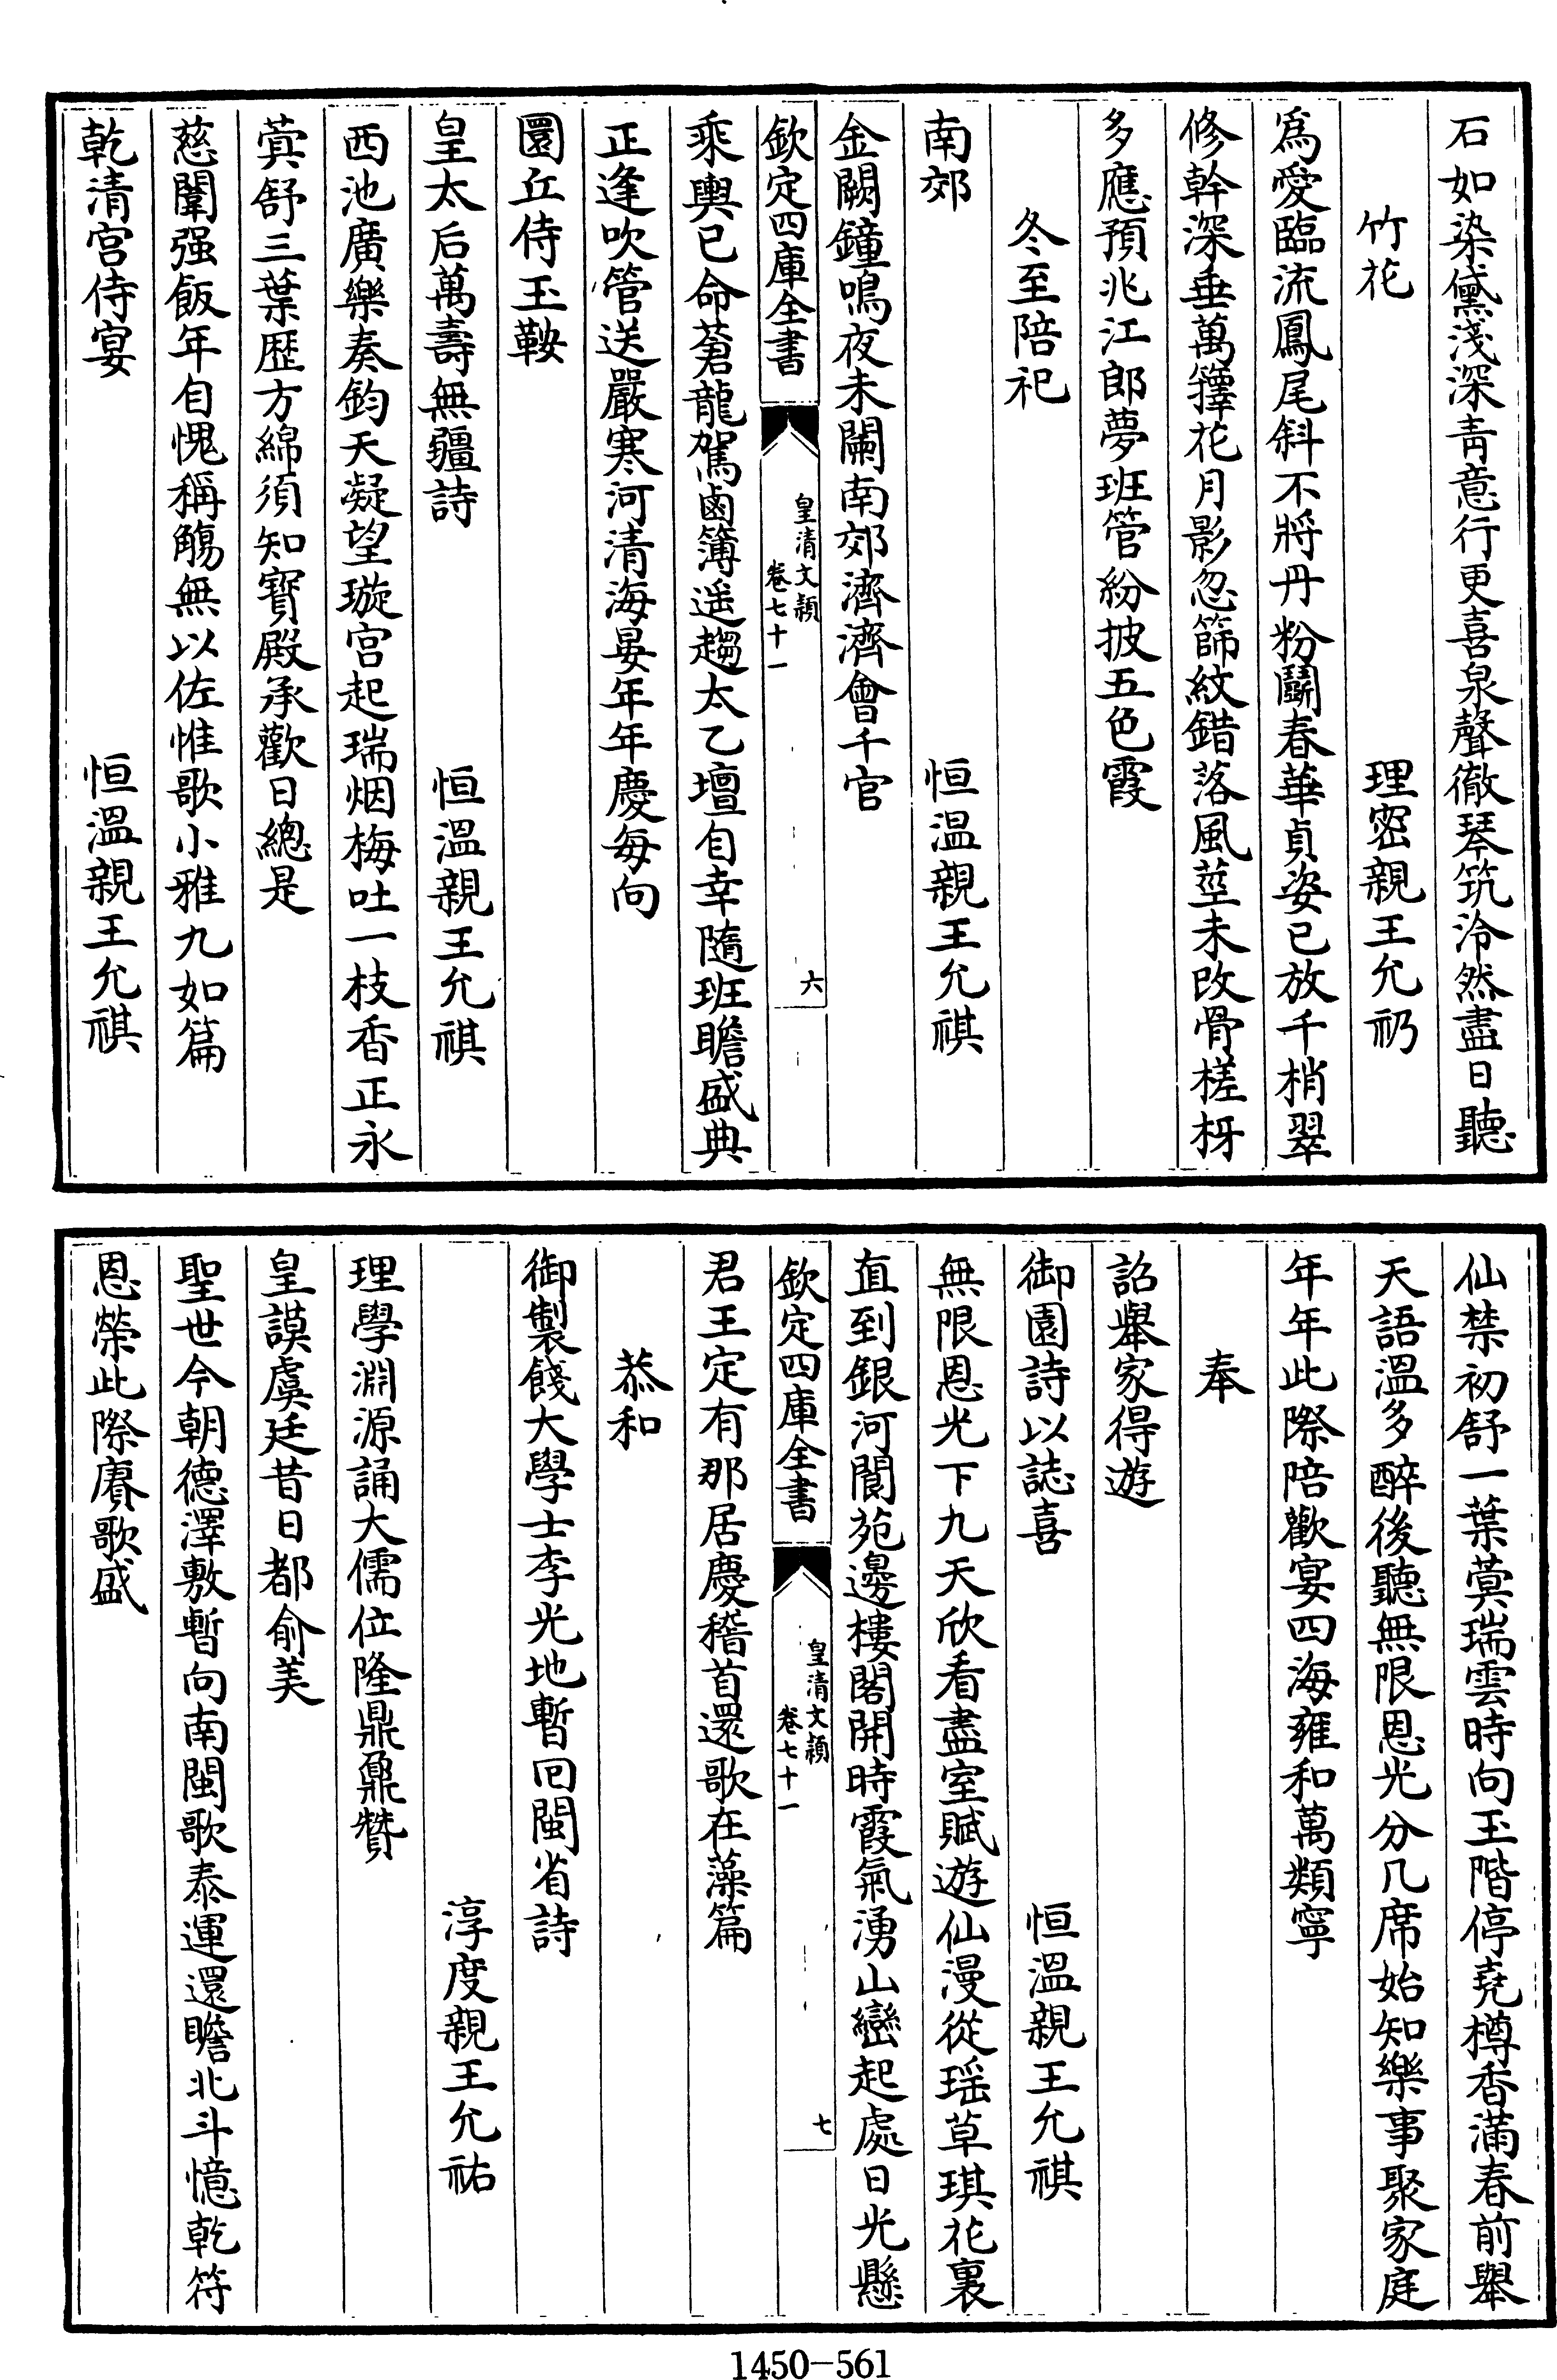 石如染黛淺深青意行更喜泉聲徹琴筑泠然盡日聽
竹花 理密親王允礽
爲愛臨流鳳尾斜不將丹粉鬬春華貞姿已放千梢翠
修幹深垂萬籜花月影忽篩紋錯落風莖未改骨槎枒
多應預兆江郎夢班管紛披五色霞
冬至陪祀
南郊 恒温親王允祺
金闕鐘鳴夜未闌南郊濟濟會千官
欽定四庫全書
皇清文穎
卷七十一
六
乘輿已命蒼龍駕鹵簿遥趨太乙壇自幸隨班瞻盛典
正逢吹管送嚴寒河清海晏年年慶每向
圜丘侍玉鞍
皇太后萬壽無疆詩 恒溫親王允祺
西池廣樂奏鈞天凝望璇宫起瑞烟梅吐一枝香正永
蓂舒三葉歴方綿須知寳殿承歡日總是
慈闈强飯年自愧稱觴無以佐惟歌小雅九如篇
乾清宫侍宴 恒溫親王允祺
仙禁初舒一葉蓂瑞雲時向玉階停堯樽香滿春前舉
天語溫多醉後聽無限恩光分几席始知樂事聚家庭
年年此際陪歡宴四海雍和萬類寧
奉
詔舉家得遊
御園詩以誌喜 恒溫親王允祺
無限恩光下九天欣看盡室賦遊仙漫從瑶草琪花裏
直到銀河閬苑邊樓閣開時霞氣湧山巒起處日光懸
欽定四庫全書
皇清文穎
卷七十一
七
君王定有那居慶稽首還歌在藻篇
恭和
御製餞大學士李光地暫回閩省詩
淳度親王允祐
理學淵源誦大儒位隆鼎鼐贊
皇謨虞廷昔日都俞美
聖世今朝德澤敷暫向南閩歌泰運還瞻北斗憶乾符
恩榮此際賡歌盛
1450-561